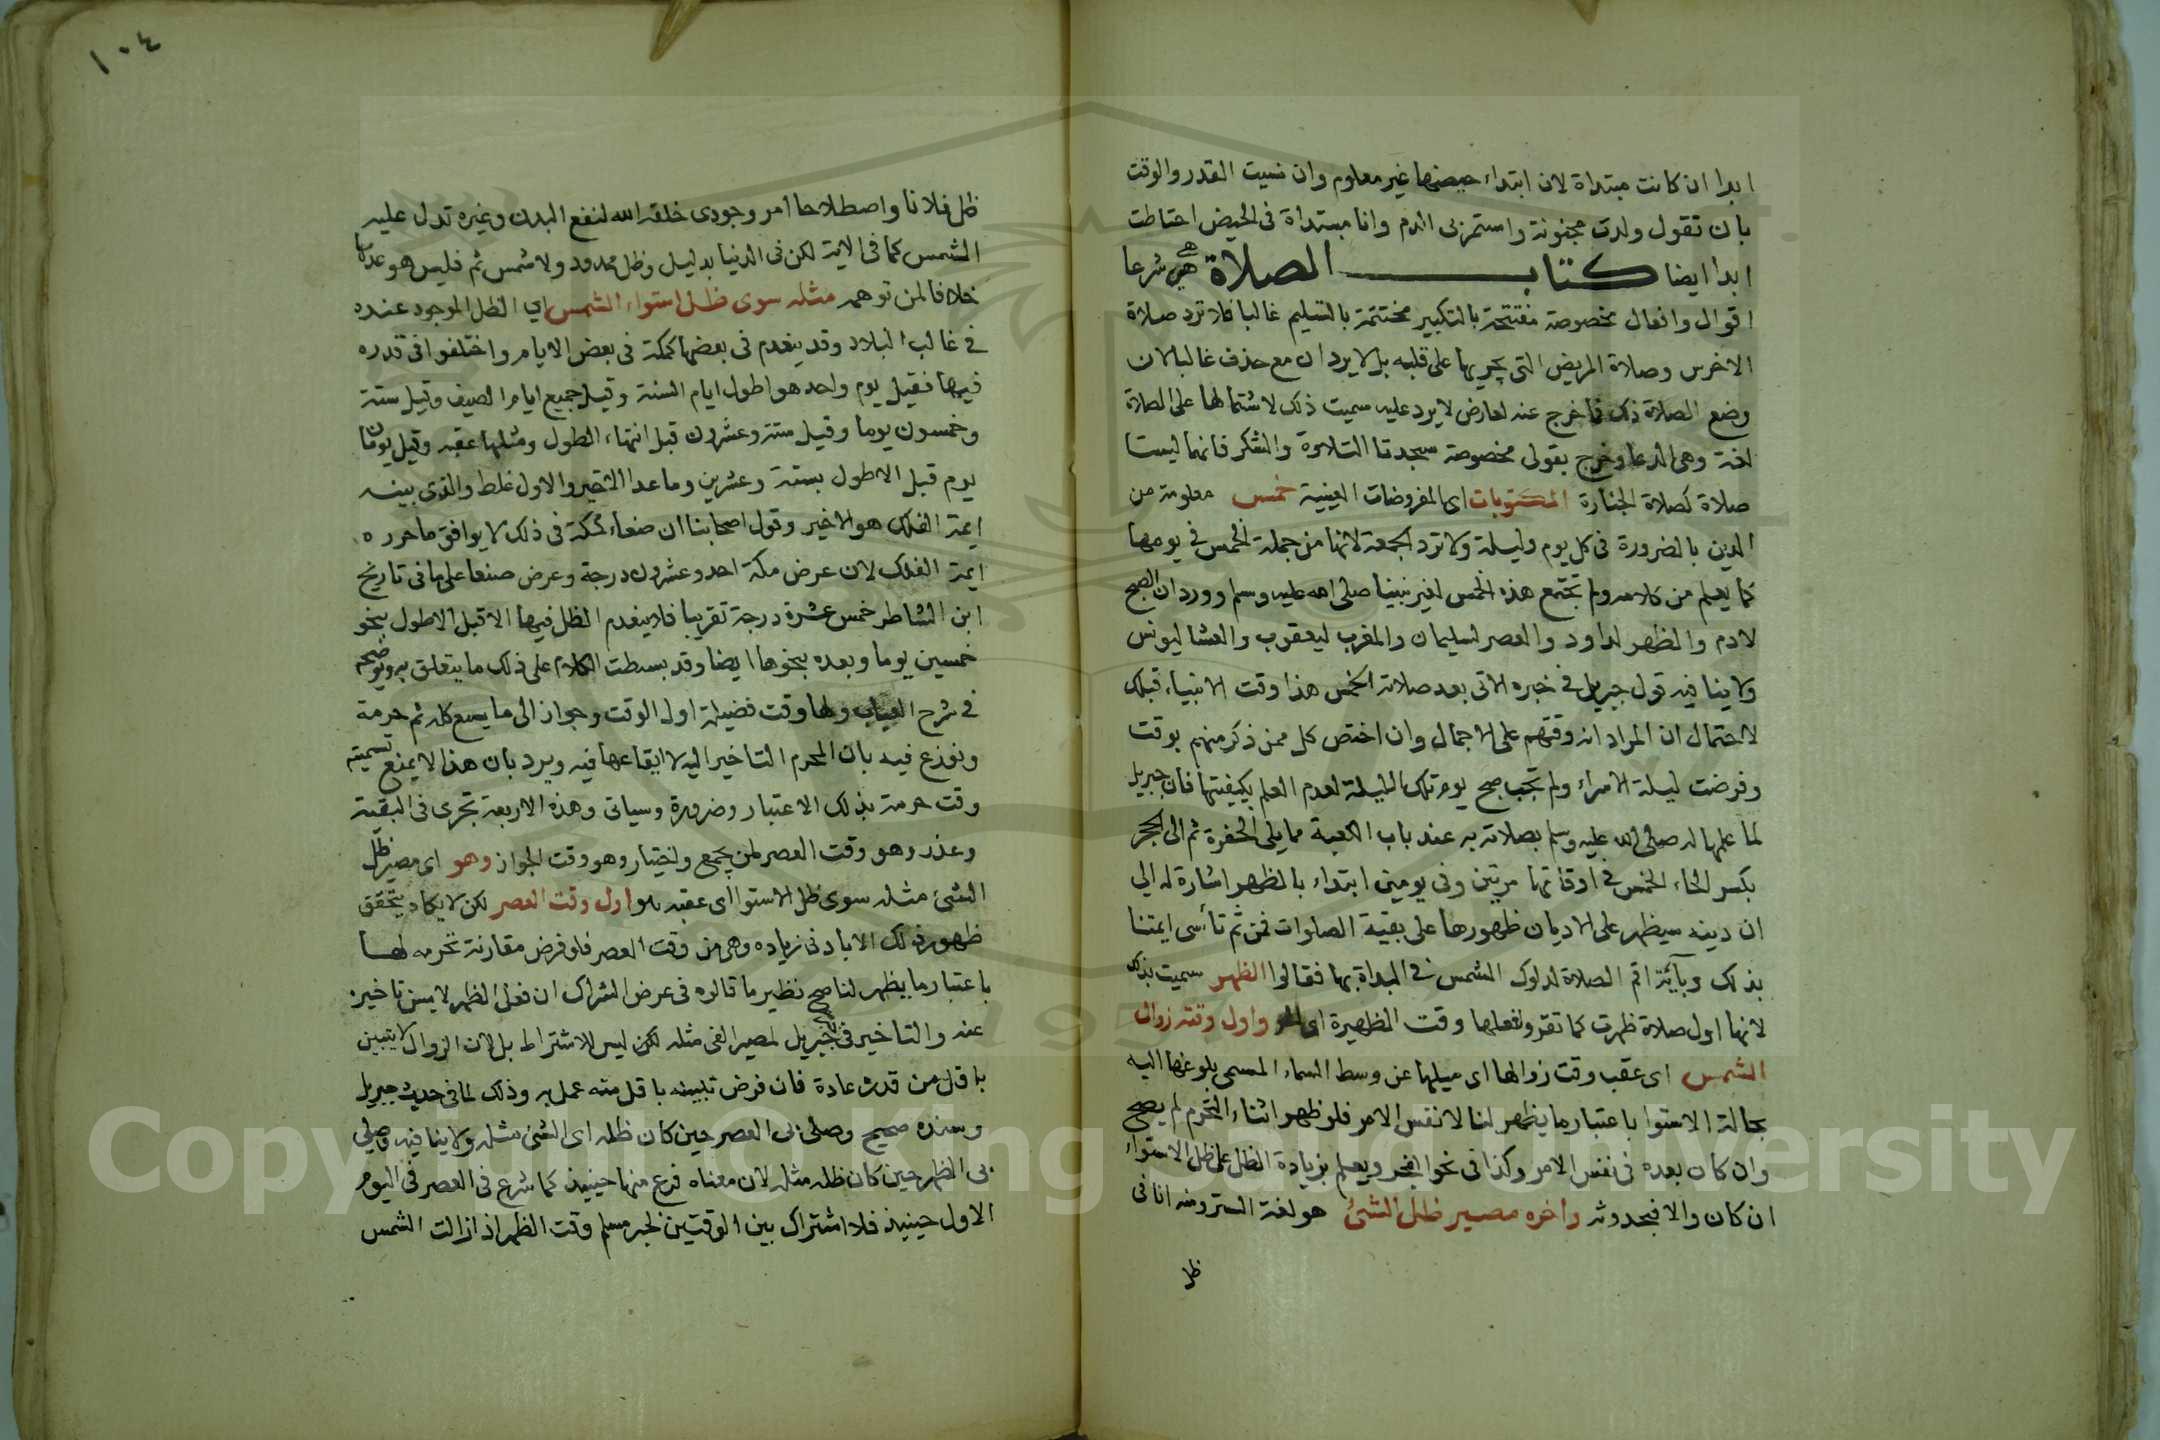 ابدا ان كانت مبتداة لان ابتداء حيضها غير معلوم وان نسيت القدر والوقت
بان تقول ولدت مجنونة واستمر بى الدم وانا مبتداة فى الحيض احتاطت
ابدا ايضا كتاب الصلاة هى شرعا
اقوال وافعال مخصوصة مفتتحة بالتكبير مختتمة بالتسليم غالبا فلا ترد صلاة
الاخرس وصلاة المريض التى يجريها على قلبه بل لا يردان مع حذف غالبا لان
وضع الصلاة ذلك فما خرج عنه لعارض لا يرد عليه سميت ذلك لاشتمالها على الصلاة
لغة وهى الدعا وخرج بقولى مخصوصة سجدتا التلاوة والشكر فانهما ليستا
صلاة كصلاة الجنازة المكتوبات اى المفروضات العينية خمس معلومة من
الدين بالضرورة فى كل يوم وليلة ولا ترد الجمعة لانها من جملة الخمس فى يومها
كما يعلم من كلامه ولم تجتمع هذه الخمس لغير نبينا صلى الله عليه وسلم وورد ان الصبح
لادم والظهر لداود والعصر لسليمان والمغرب ليعقوب والعشا ليونس
ولا ينافيه قول جبريل فى خبره الاتى بعد صلاته الخمس هذا وقت الانبياء قبلك
لاحتمال ان المراد انه وقتهم على الاجمال وان اختص كل ممن ذكر منهم بوقت
وفرضت ليلة الاسراء ولم تجب صبح يوم تلك الليلة لعدم العلم بكيفيتها فان جبريل
لما علمها له صلى الله عليه وسلم بصلاته به عند باب الكعبة مما يلى الحفرة ثم الى الحجر
بكسر الحاء الخمس فى اوقاتها مرتين وفى يومين ابتداء بالظهر اشارة له الى
ان دينه سيظهر على الاديان ظهورها على بقية الصلوات فمن ثم تأسى ايمتنا
بذلك وبآية اقم الصلاة لدلوك الشمس فى البداة بها فقالوا الظهر سميت بذلك
لانها اول صلاة ظهرت كما تقرر ولفعلها وقت الظهيرة اى الحر واول وقته زوال
الشمس اى عقب وقت زوالها اى ميلها عن وسط السماء المسمى بلوغها اليه
بحالة الاستوا باعتبار ما يظهر لنا لا نفس الامر فلو ظهر اثناء التحرم لم يصح
وان كان بعده فى نفس الامر وكذا فى نحو الفجر ويعلم بزيادة الظل على ظل الاستواء
ان كان والا فبحدوثه وآخره مصير ظل الشئ هو لغة الستر ومنه انا فى
ظل
١٠٤
ظل فلان واصطلاحا امر وجودى خلقه الله لنفع البدن وغيره تدل عليه
الشمس كما فى الاية لكن فى الدنيا بدليل وظل ممدود ولا شمس ثم فليس هو عدمها
خلافا لمن توهمه مثله سوى ظل استواء الشمس اي الظل الموجود عنده
فى غالب البلاد وقد ينعدم فى بعضها كمكة فى بعض الايام واختلفوا فى قدره
فيها فقيل يوم واحد هو اطول ايام السنة وقيل جميع ايام الصيف وقيل ستة
وخمسون يوما وقيل ستة وعشرون قبل انتهاء الطول ومثلها عقبه وقيل يومان
يوم قبل الاطول بستة وعشرين وما عدا الاخير والاول غلط والذى بينه
ايمة الفلك هو الاخير وقول اصحابنا ان صنعاء كمكة فى ذلك لا يوافق ما حرره
ايمة الفلك لان عرض مكة احد وعشرون درجة وعرض صنعا على ما فى تاريخ
ابن الشاطر خمس عشرة درجة تقريبا فلا ينعدم الظل فيها الا قبل الاطول بنحو
خمسين يوما وبعده بنحوها ايضا وقد بسطت الكلام على ذلك ما يتعلق به ويوضحه
فى شرح العباب ولها وقت فضيلة اول الوقت وجواز الى ما يسع كله ثم حرمة
ونوزع فيه بان المحرم التاخير اليه لا ايقاعها فيه ويرد بان هذا لا يمنع تسميته
وقت حرمة بذلك الاعتبار وضرورة وسياتى وهذه الاربعة تجرى فى البقية
وعذر وهو وقت العصر لمن يجمع واختيار وهو وقت الجواز وهو اى مصير ظل
الشئ مثله سوى ظل الاستوا اى عقبه اول وقت العصر لكن لا يكاد يتحقق
ظهور ذلك الا بادنى زياده وهى من وقت العصر فلو فرض مقارنة تحرمه لها
باعتبار ما يظهر لنا صح نظير ما قالوه فى عرض الشراك ان فعل الظهر لا يسن تاخيره
عنه والتاخير فى خبر جبريل لمصير الفى مثله لكن ليس للاشتراط بل لان الزوال لا يتبين
باقل من قدره عادة فان فرض تبيينه باقل منه عمل به وذلك لما فى حديث جبريل
وسنده صحيح وصلى بى العصر حين كان ظله اى الشئ مثله ولا ينافيه وصلى
بى الظهر حين كان ظله مثله لان معناه فرغ منها حينيذ كما شرع فى العصر فى اليوم
الاول حينيذ فلا اشتراك بين الوقتين لخبر مسلم وقت الظهر اذا زالت الشمس
Copyright © King Saud University
1957